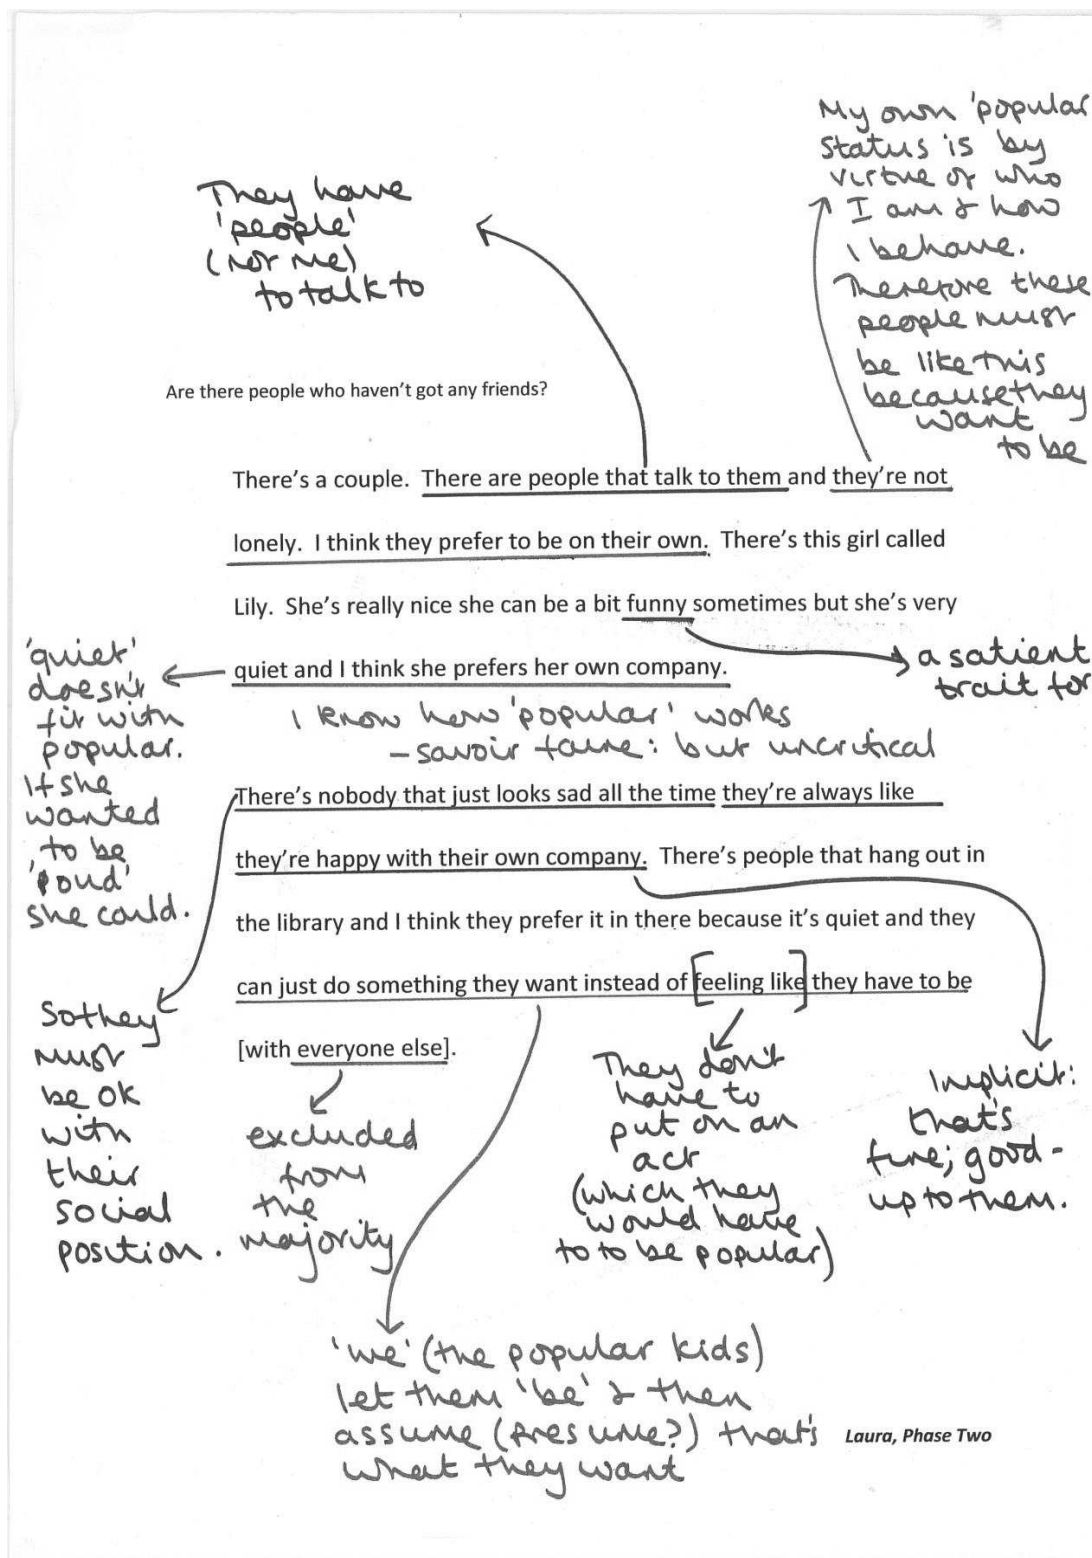 My own 'popular
status is by
virtue of who
I am & how
I behave.
Therefore these
people must
be like this
because they
want
to be
They have
'people'
(not me)
to talk to
Are there people who haven't got any friends?
There's a couple. There are people that talk to them and they're not
lonely. I think they prefer to be on their own. There's this girl called
Lily. She's really nice she can be a bit funny sometimes but she's very
quiet and I think she prefers her own company.
a salient
trait for
'quiet'
doesn't
fit with
popular.
If she
wanted
to be
she could.
I know how 'popular' works
- savoir faire: but uncritical
There's nobody that just looks sad all the time they're always like
they're happy with their own company. There's people that hang out in
the library and I think they prefer it in there because it's quiet and they
can just do something they want instead of [feeling like] they have to be
[with everyone else].
So they
must
be ok
with
their
social
position.
excluded
from
the
majority
They don't
have to
put on an
act
(which they
would have
to to be popular)
Implicit:
that's
fine; good -
up to them.
'we' (the popular kids)
let them 'be' & then
assume (presume?) that's
what they want
Laura, Phase Two